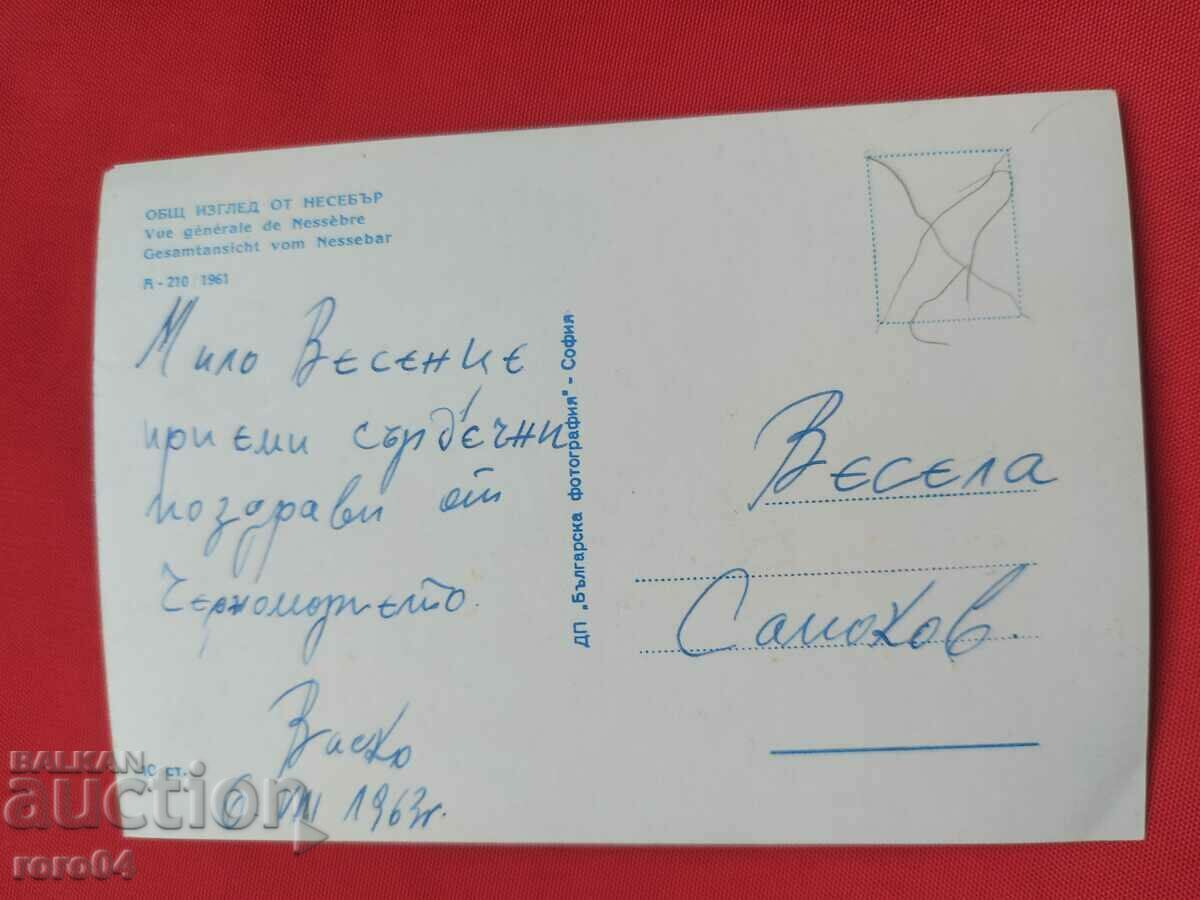 ОБЩ ИЗГЛЕД ОТ НЕСЕБЪР
Vue générale de Nessèbre
Gesamtansicht vom Nessebar
А - 210 1961
Мило Весенце
приеми сърдечни
поздрави от
Черноморието.
Васко
6 VIII 1963г.
10 ст.
ДП „Българска фотография" - София
Весела
Самоков.
BALKAN
auction
roro04